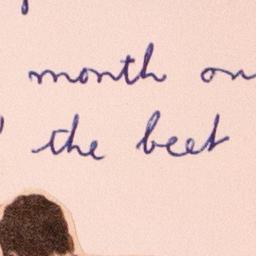 month on
the beet